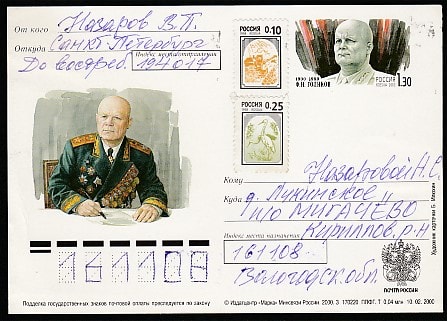 От кого Назаров В.П.
Откуда Санкт Петербург
Индекс места отправления
До востреб. 194017
РОССИЯ 0.10
РОССИЯ 0.25
1900 1980
Ф.И. ГОЛИКОВ
РОССИЯ
ROSSIJA 2000
1.30
Кому Назаровой Н.С.
Куда д. Лукинское
п/о МИГАЧЁВО
Кириллов. р-н
Индекс места назначения
161108
Вологодск. обл.
161108
ПОЧТА РОССИИ
Художник карточки Б. Илюхин
Подделка государственных знаков почтовой оплаты преследуется по закону
© Издатцентр «Марка» Минсвязи России. 2000. З. 170220. ППФГ. Т. 0,04 млн 10. 02. 2000